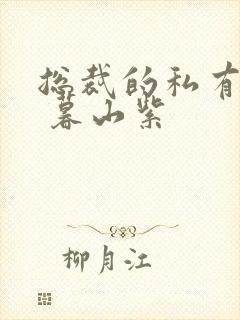 总裁的私有
暮山紫
柳月江